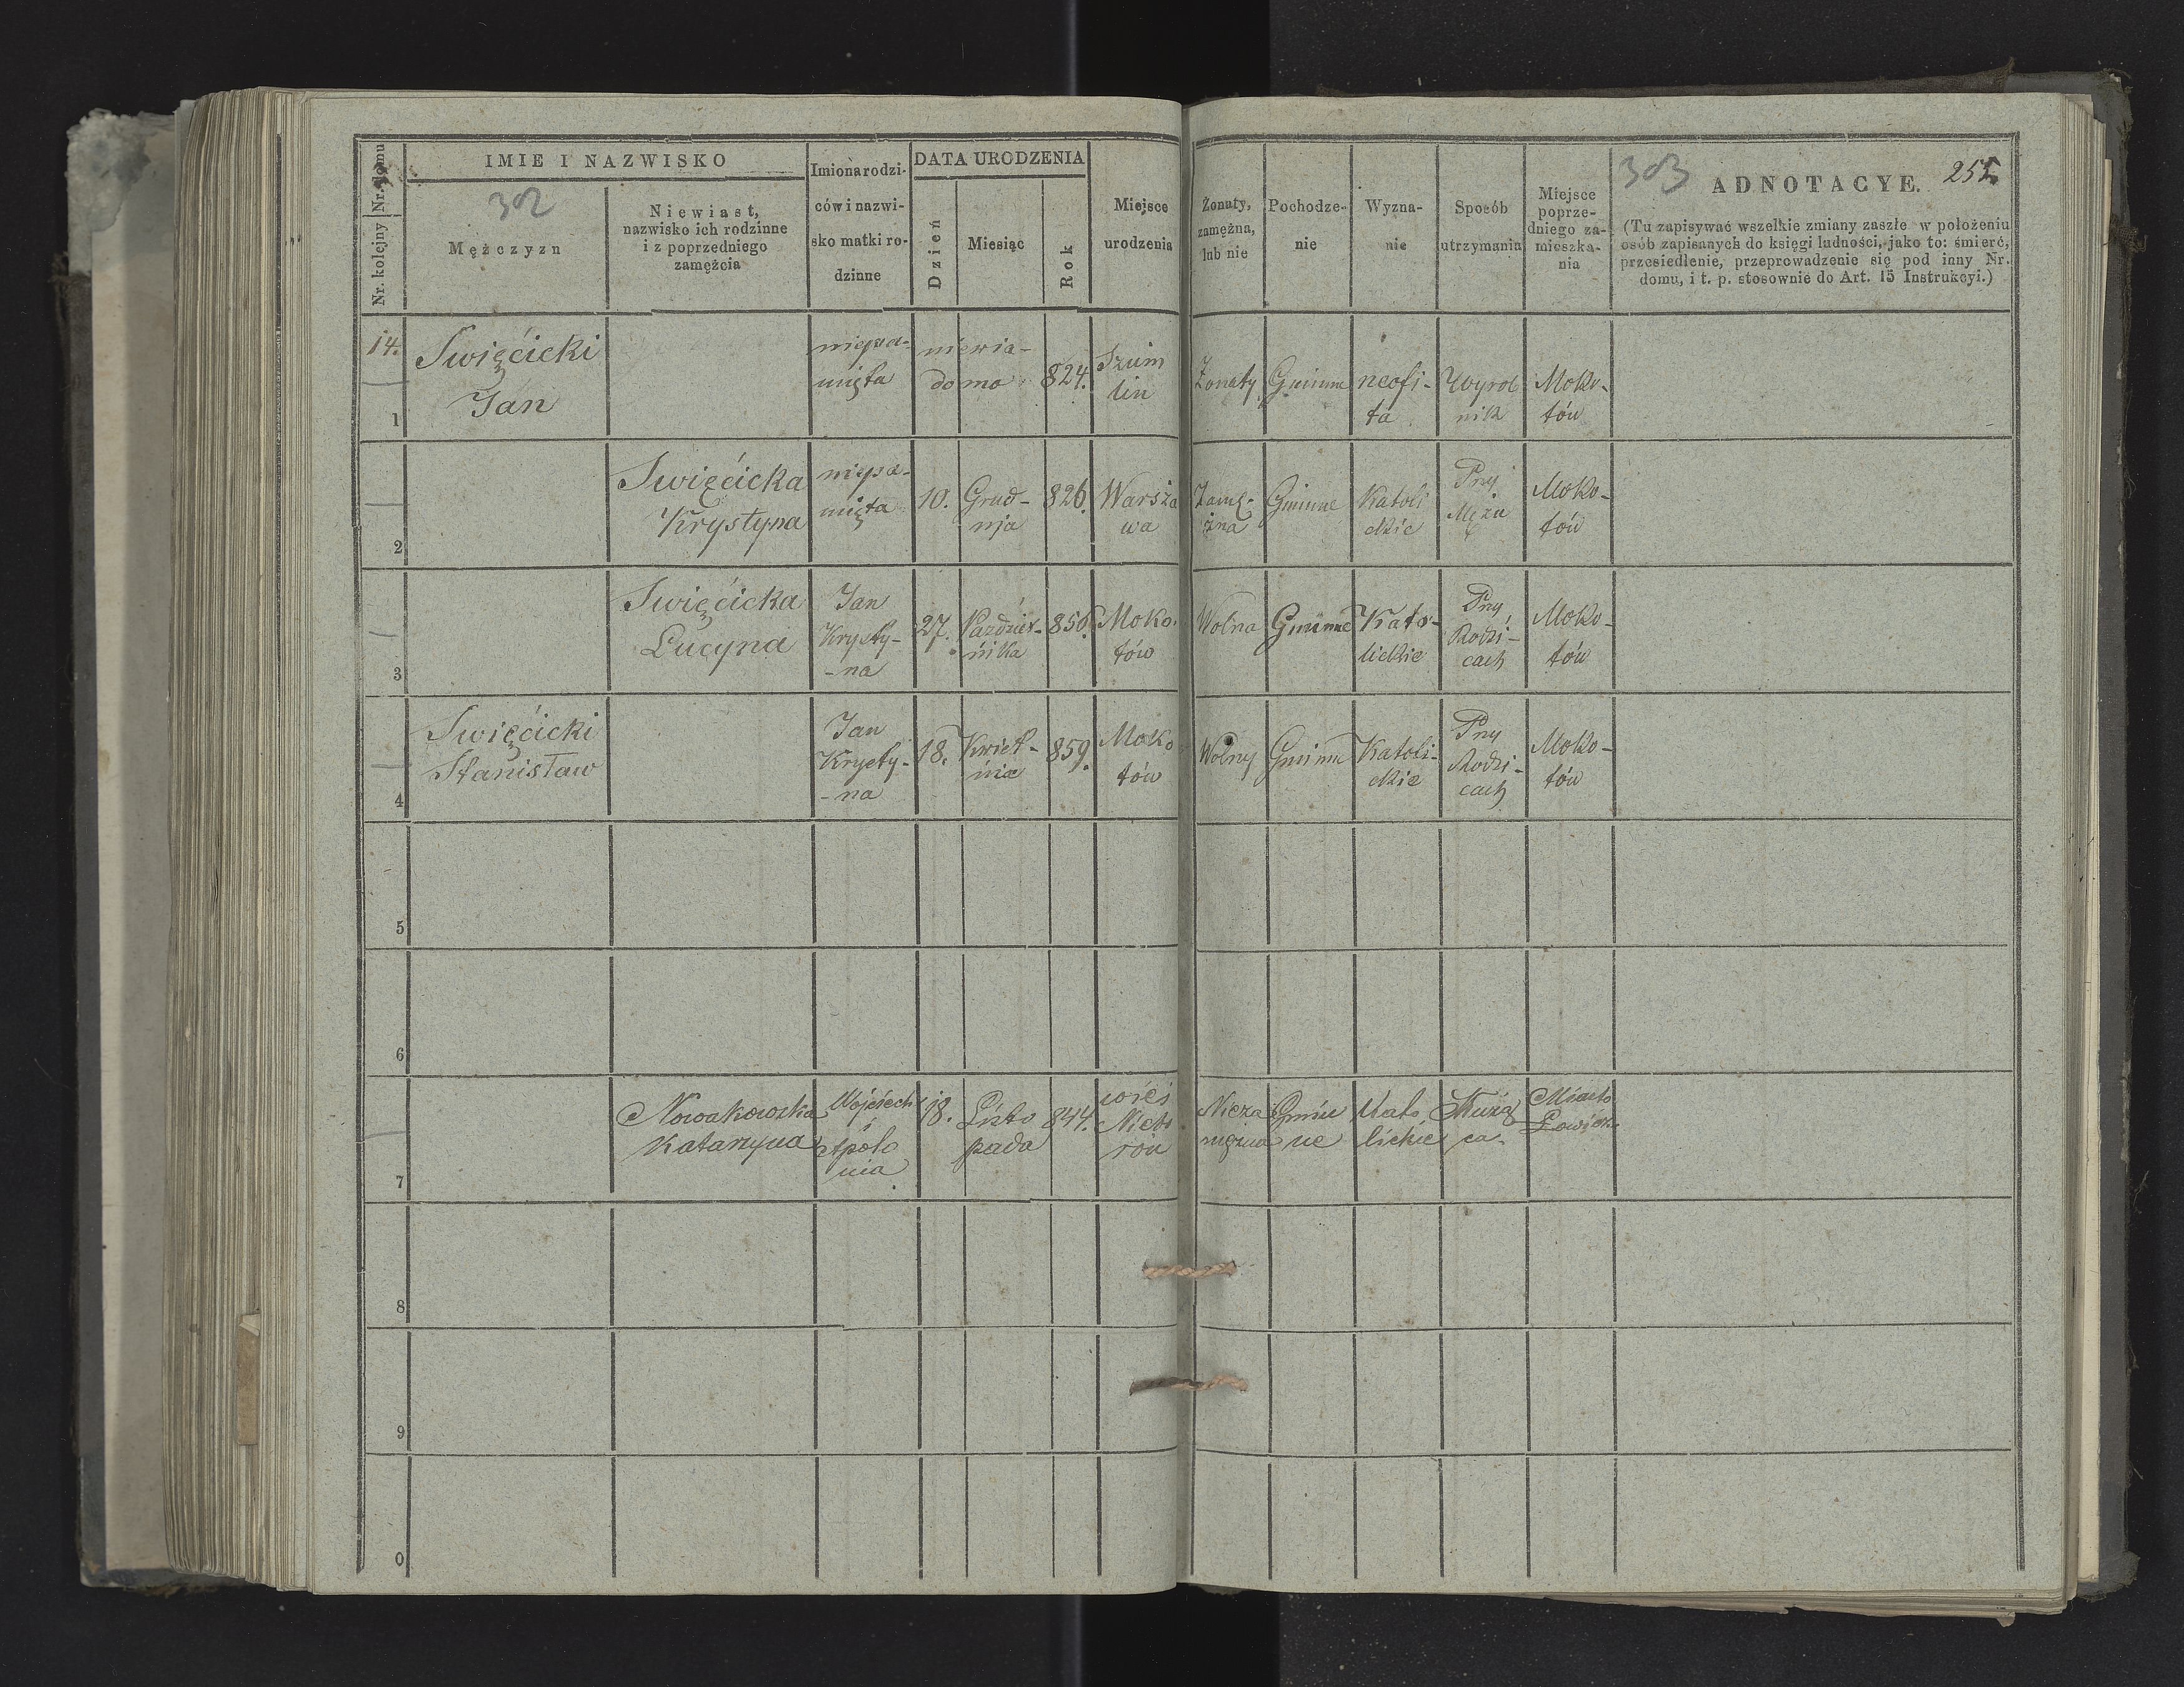 Nr. domu
Nr. kolejny
IMIE I NAZWISKO
302
Mężczyzn
Niewiast,
nazwisko ich rodzinne
i z poprzedniego
zamężcia
Imiona rodzi-
ców i nazwi-
sko matki ro-
dzinne
DATA URODZENIA
Dzień
Miesiąc
Rok
Miejsce
urodzenia
Żonaty,
zamężna,
lub nie
Pochodze-
nie
Wyzna-
nie
Sposób
utrzymania
Miejsce
poprze-
dniego za-
mieszka-
nia
303
ADNOTACYE.
(Tu zapisywać wszelkie zmiany zaszłe w położeniu
osób zapisanych do księgi ludności, jako to: śmierć,
przesiedlenie, przeprowadzenie się pod inny Nr.
domu, i t. p. stosownie do Art. 15 Instrukcyi.)
14.
1
Swięćicki
Jan
niepa-
mięta
niewia-
domo
824.
Szum
lin
Żonaty
Gminne
neofi-
ta
Wyrob
nik
Moko-
tów
2
Swięćicka
Krystyna
niepa-
mięta
10.
Grud-
nia
826.
Warsza
wa
Zamę-
żna
Gminne
Katoli
ckie
Przy
Mężu
Moko-
tów
3
Swięćicka
Lucyna
Jan
Krysty-
-na
27.
Paździer-
nika
856.
Moko-
tów
Wolna
Gminne
Kato-
lickie
Przy
Rodzi-
cach
Moko-
tów
4
Swięćicki
Stanisław
Jan
Krysty-
-na
18.
Kwiet-
nia
859.
Moko
tów
Wolny
Gminne
Katoli-
ckie
Przy
Rodzi-
cach
Moko-
tów
5
6
7
Nowakowska
Katarzyna
Wojciech
i
Apolo
nia
18.
Listo
pada
844.
wieś
Niebo
rów
Nieza
mężna
Gmin
ne
Kato
lickie
Służą
ca
Miasto
Łowicz
8
9
0